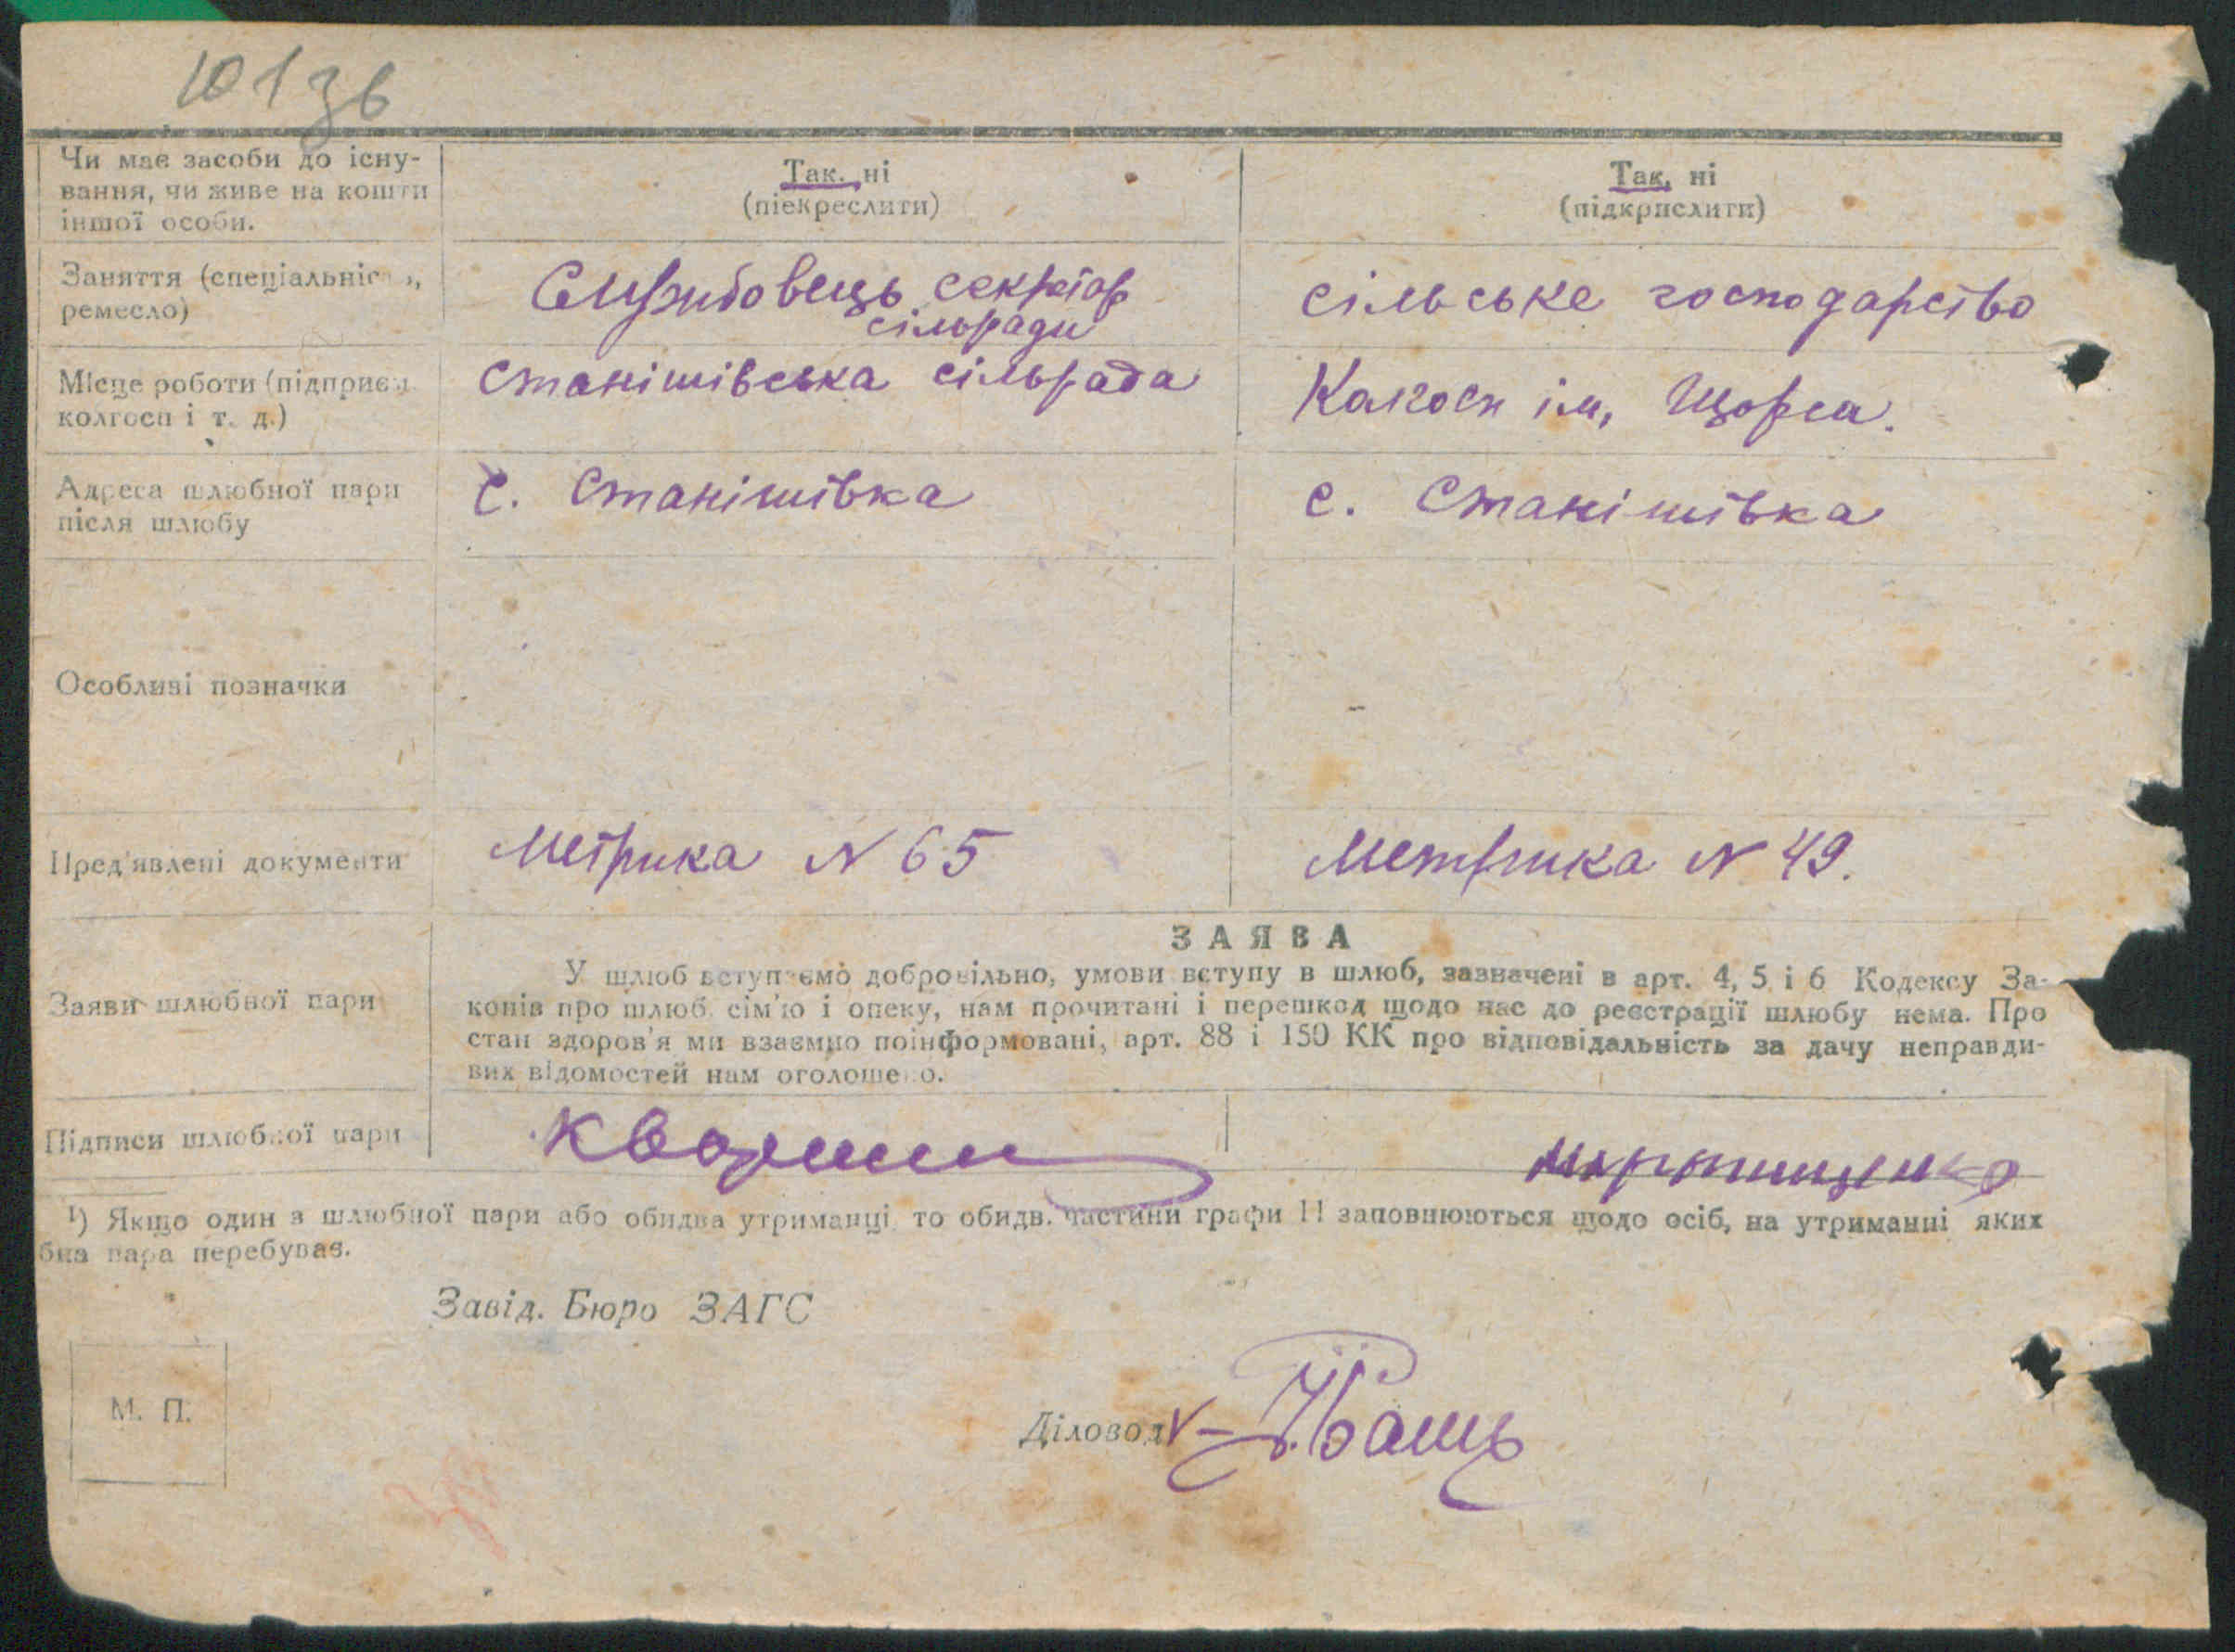 101зв
Чи має засоби до існу-
вання, чи живе на кошти
іншої особи.
Так. ні
(піекреслити)
Так, ні
(підкрислити)
Заняття (спеціальніс
ремесло)
Службовець секретар
сільради
сільське господарство
Місце роботи (підприєм
колгосп і т. д.)
Станішівська сільрада
Колгосп ім, Щорса.
Адреса шлюбної пари
після шлюбу
с. Станішівка
с. Станішівка
Особливі позначки
Пред'явлені документи
Метрика N 65
Метрика N 49.
Заяви шлюбної пари
ЗАЯВА
У шлюб вступаємо добровільно, умови вступу в шлюб, зазначені в арт. 4, 5 і 6 Кодексу За-
конів про шлюб, сім'ю і опеку, нам прочитані і перешкод щодо нас до реєстрації шлюбу нема. Про
стан здоров'я ми взаємно поінформовані, арт. 88 і 150 КК про відповідальність за дачу неправди-
вих відомостей нам оголошено.
Підписи шлюбної пари
¹) Якщо один з шлюбної пари або обидва утриманці, то обидв. частини графи 11 заповнюються щодо осіб, на утриманні яких
бна пара перебуває.
Завід. Бюро ЗАГС
М. П.
Діловод